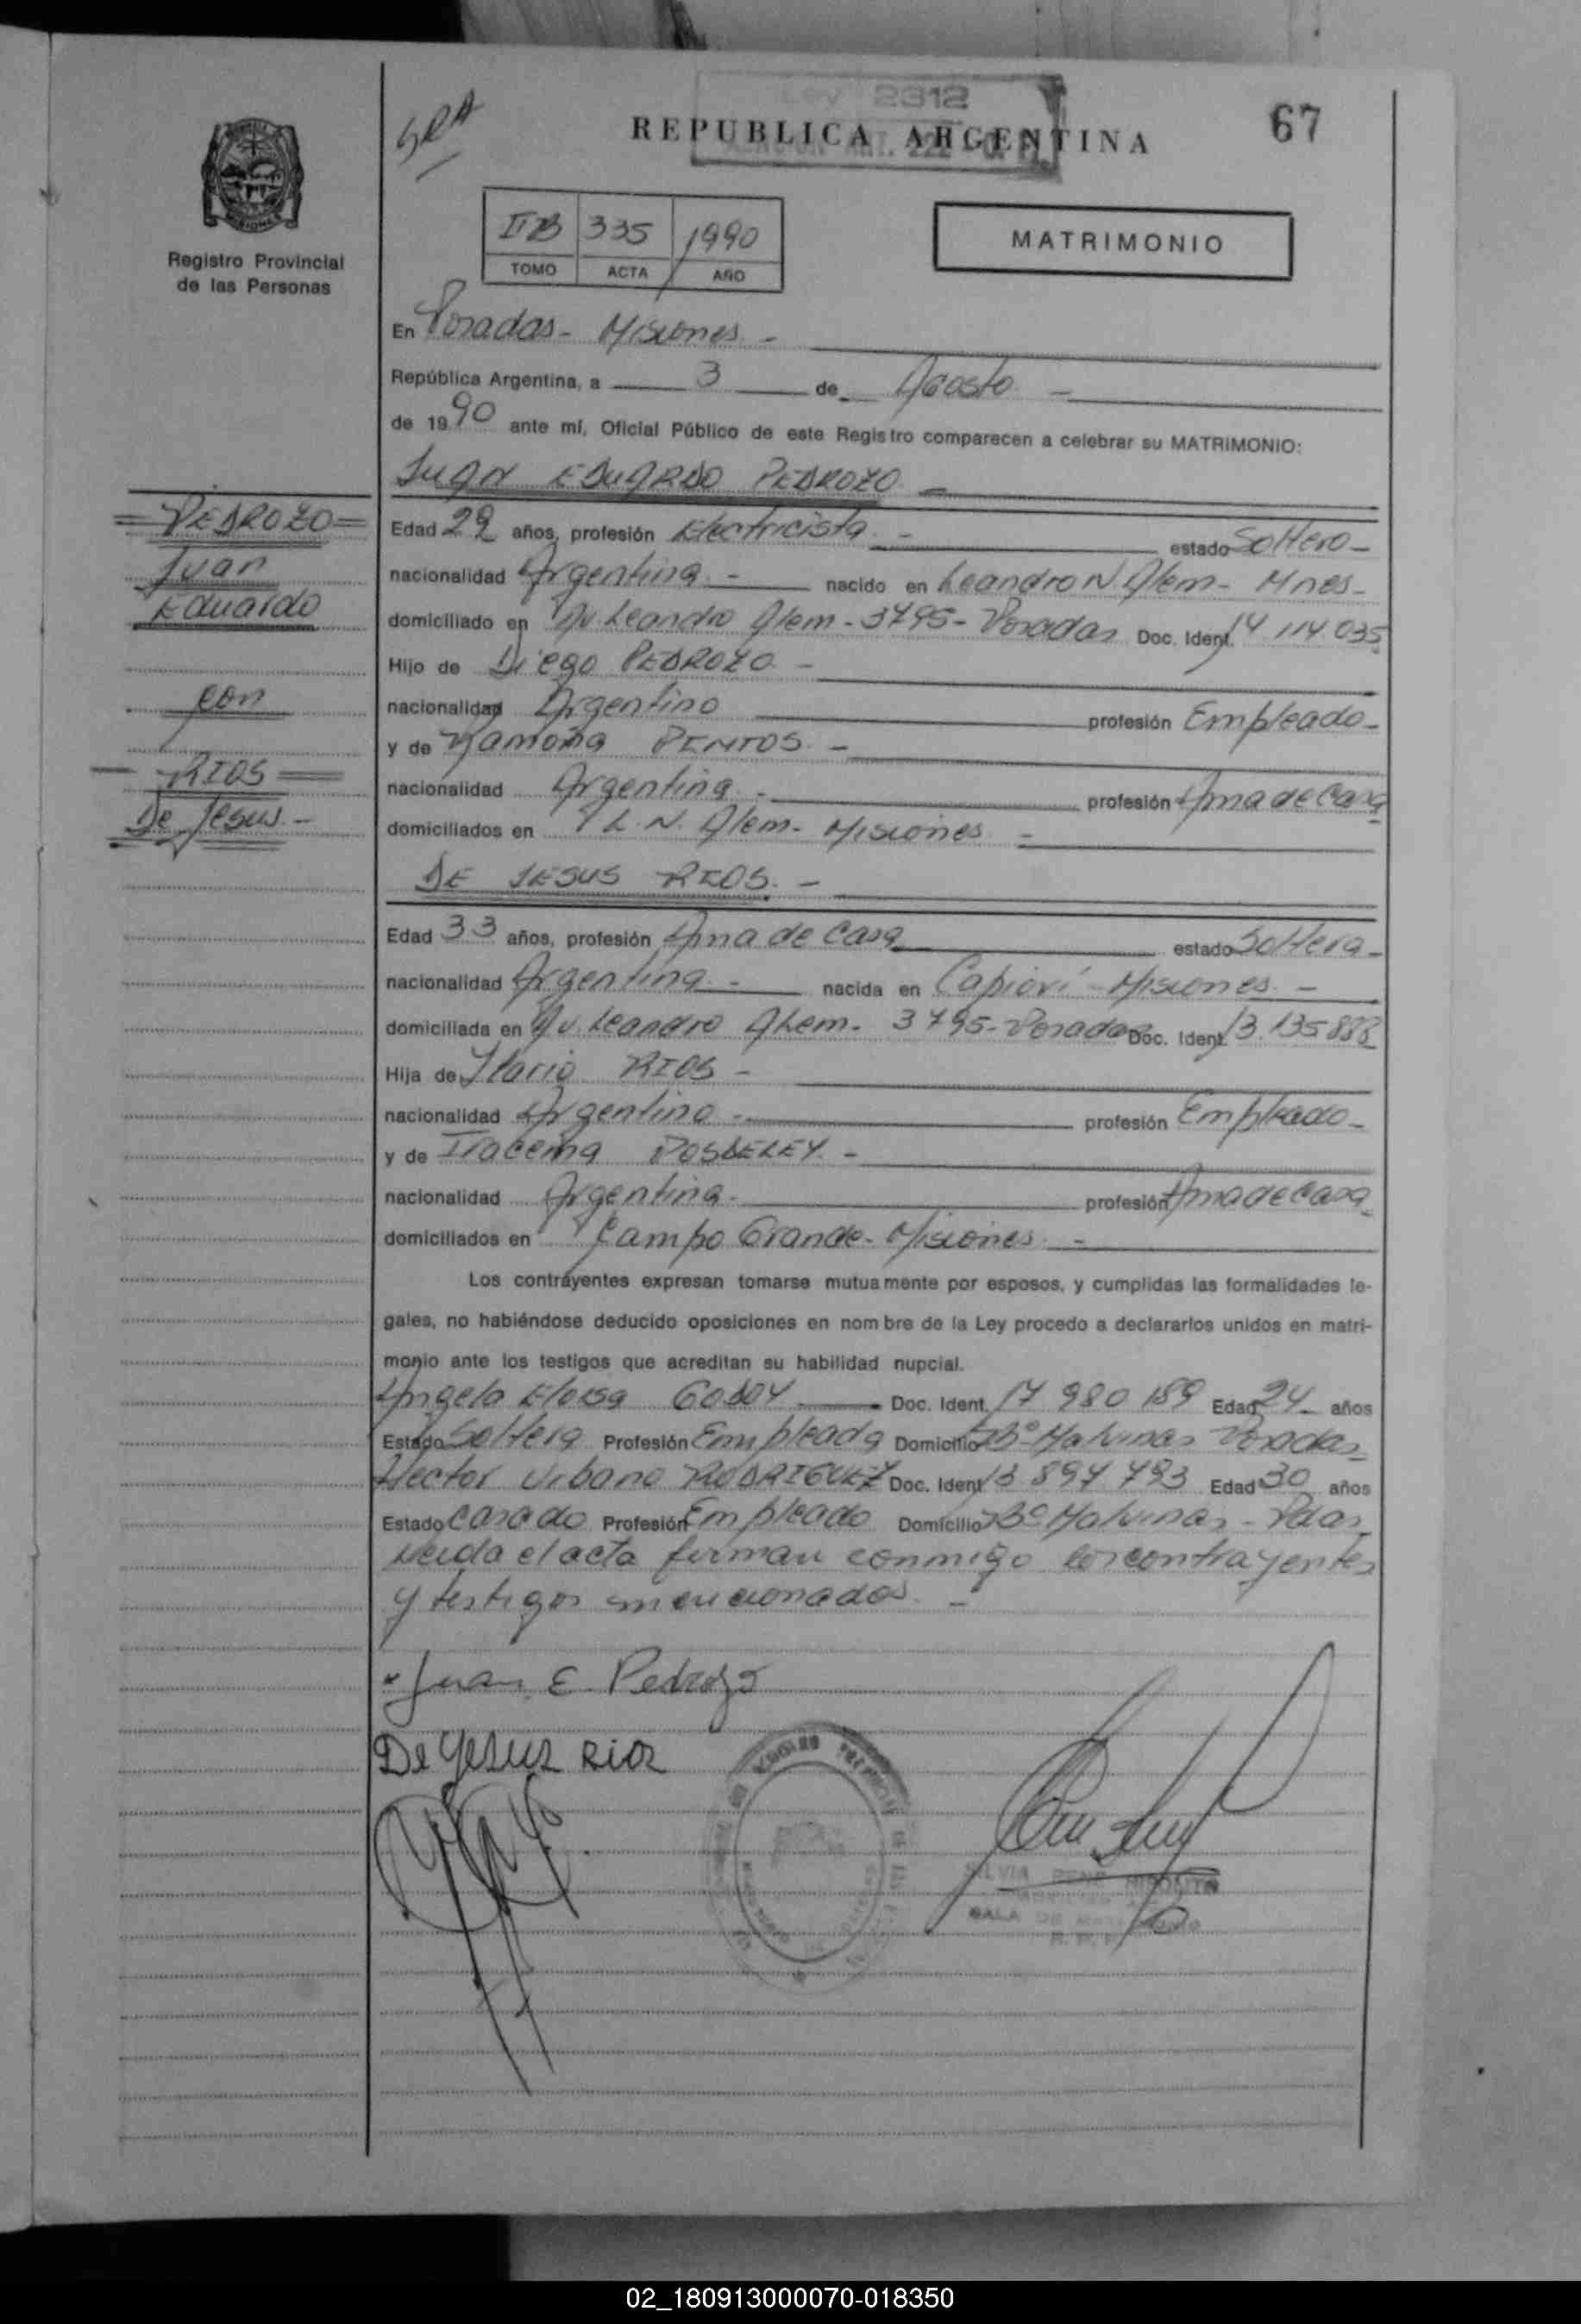 Ley 2312
REPUBLICA ARGENTINA
67
SRA
Registro Provincial
de las Personas
IIB 335 1990
TOMO ACTA AÑO
MATRIMONIO
En Posadas - Misiones -
República Argentina, a 3 de Agosto -
de 1990 ante mí, Oficial Público de este Registro comparecen a celebrar su MATRIMONIO:
JUAN EDUARDO PEDROZO -
Edad 29 años, profesión Electricista - estado Soltero -
nacionalidad Argentina - nacido en Leandro N. Alem - Mnes -
domiciliado en Av Leandro Alem - 3795 - Posadas Doc. Ident. 14 114 035
Hijo de Diego PEDROZO -
nacionalidad Argentino profesión Empleado -
y de Ramona PINTOS -
nacionalidad Argentina - profesión Ama de Casa
domiciliados en L N. Alem - Misiones -
DE JESUS RIOS. -
Edad 33 años, profesión Ama de Casa estado Soltera -
nacionalidad Argentina - nacida en Capioví - Misiones -
domiciliada en Av. Leandro Alem - 3795 - Posadas Doc. Ident. 13.135888
Hija de Ilario RIOS -
nacionalidad Argentino - profesión Empleado -
y de Iracema POSDELEY -
nacionalidad Argentina - profesión Ama de Casa
domiciliados en Campo Grande - Misiones -
Los contrayentes expresan tomarse mutuamente por esposos, y cumplidas las formalidades le-
gales, no habiéndose deducido oposiciones en nombre de la Ley procedo a declararlos unidos en matri-
monio ante los testigos que acreditan su habilidad nupcial.
Angela Eloisa GODOY Doc. Ident. 17 980 189 Edad 24 años
Estado Soltera Profesión Empleada Domicilio Bº Malvinas Posadas
Hector Urbano RODRIGUEZ Doc. Ident. 13 897 793 Edad 30 años
Estado Casado Profesión Empleado Domicilio Bº Malvinas - Pdas
Leida el acta firman conmigo los contrayentes
y testigos mencionados. -
= PEDROZO =
Juan
Eduardo
con
RIOS
De Jesus. -
Juan E. Pedrozo
De Jesus Rios
SILVIA
SALA DE
02_180913000070-018350